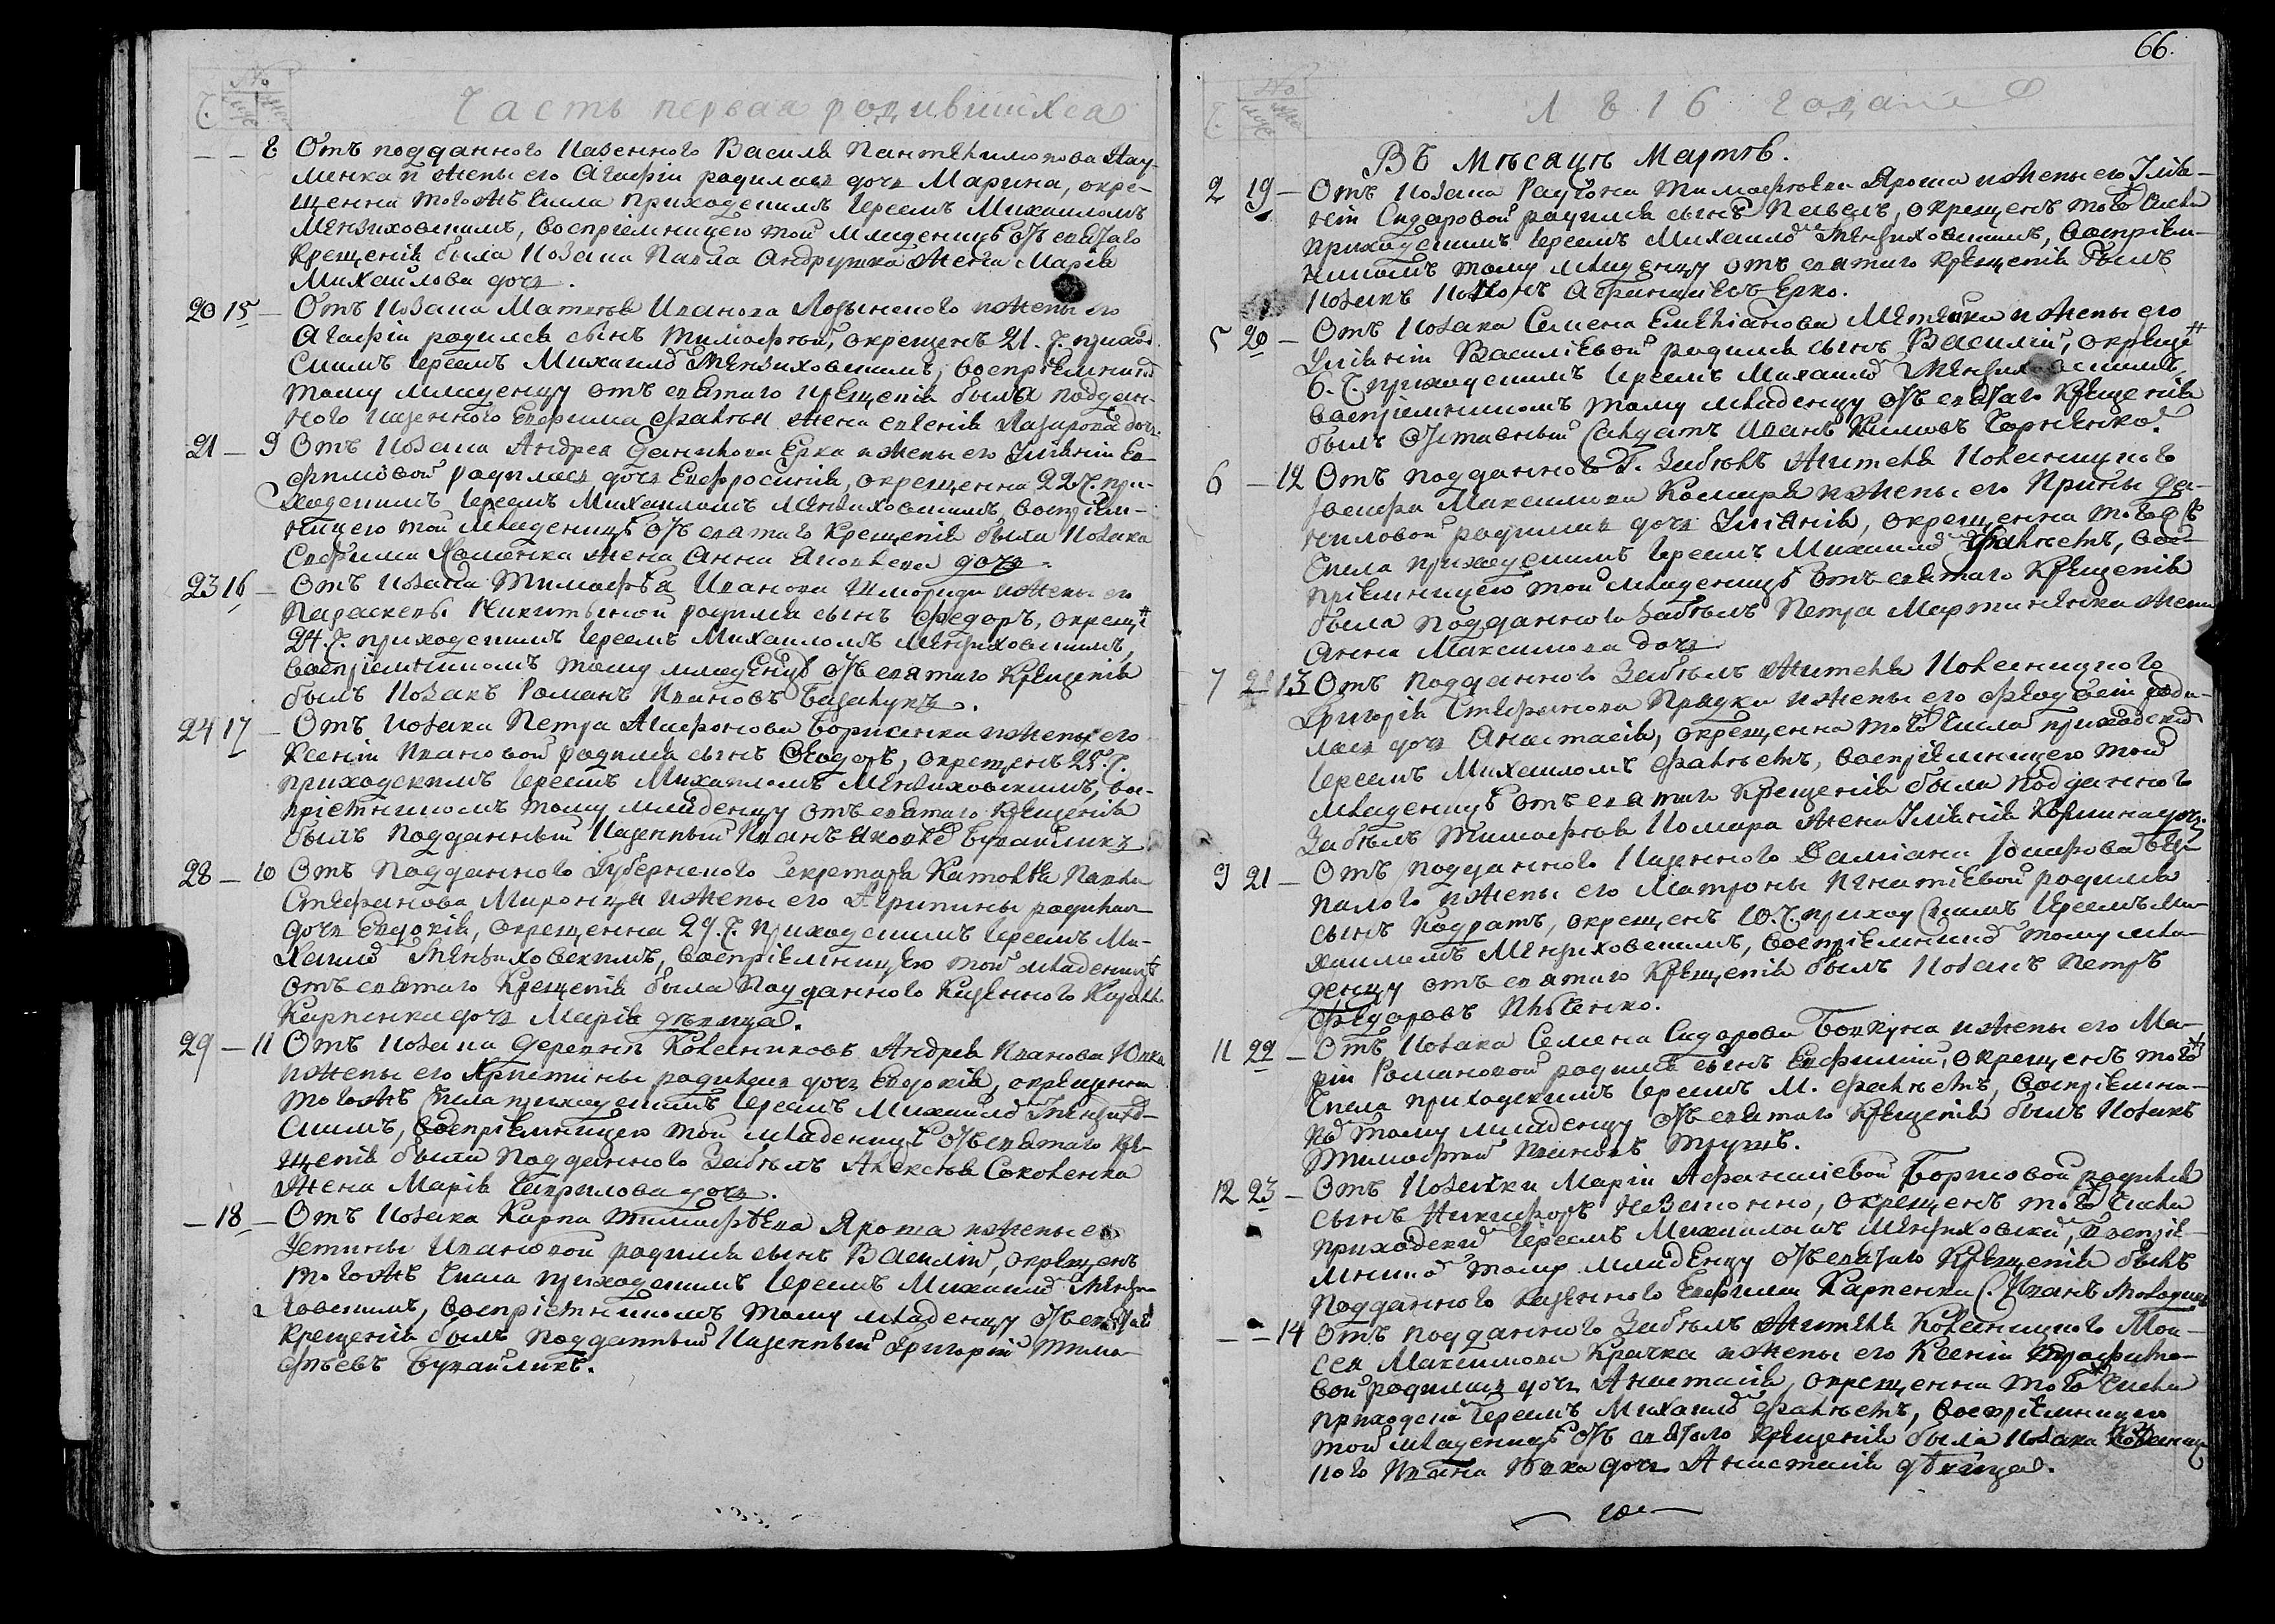 Часть первая родившихся
№
Ч.
— — 8 Отъ подданного казенного Василя Пантелимонова Нау-
менка и жены его Агафіи родилась дочъ Марина, окре-
щенна того жъ числа приходскимъ Іереемъ Михаиломъ
Менжиховскимъ, воспріемницею той младеницѣ отъ святаго
крещенія была козака Павла Андрушка жена Марія
Михайлова дочъ.
20 15 — Отъ козака Матвѣя Иванова жены его
Агафіи родился сынъ Тимофтей, окрещенъ 21. ч. приход
скимъ Іереемъ Михаило Менжиховскимъ, воспріемницею
тому младенцу отъ святаго крещенія была поддан-
ного казенного Евфима жена Евгенія Лазарова дочъ.
21 — 9 Отъ козака Андрея Данилова Ерка и жены его Уліяніи Ев-
фимовой родилась дочъ Евфросинія, окрещенна 22 ч. при-
ходскимъ Іереемъ Михаиломъ Менжиховскимъ, воспріем-
ницею той младеницѣ отъ святаго крещенія была козака
Евфима Хоменка жена Анна Яковлева дочъ.
23 16 — Отъ козака Тимофѣя Иванова и жены его
Параскевы Никитиной родился сынъ Федоръ, окреще
24. ч. приходскимъ Іереемъ Михаиломъ Менжиховскимъ,
воспріемникомъ тому младенцу отъ святаго крещенія
былъ козакъ Романъ Ивановъ
24 17 — Отъ козака Петра Агафонова Борисенка и жены его
Ксеніи Ивановой родился сынъ Ѳеодоръ, окрещенъ 25. ч.
приходскимъ Іереемъ Михаиломъ Менжиховскимъ, вос-
пріемникомъ тому младенцу отъ святаго крещенія
былъ подданный казенный Иванъ Яковле Бувайликъ
28 — 10 Отъ подданного Губернского Секретаря Павла
Стефанова Миронца и жены его Агрипины родилась
дочъ Евдокія, окрещенна 29. ч. приходскимъ Іереемъ Ми-
хаило Менжиховскимъ, воспріемницею той младеницѣ
отъ святаго крещенія была подданного казенного
Карпенка дочъ Марія дѣвица.
29 — 11 Отъ козака деревни Колесниковъ Андрея Иванова Юпка
и жены его Христины родилась дочъ Евдокія, окрещенна
того жъ числа приходскимъ Іереемъ Михаило Менжихов-
скимъ, воспріемницею той младеницѣ отъ святаго кре-
щенія была подданного Забѣлъ Алексѣя Соколенка
жена Марія Гаврилова дочъ.
— 18 — Отъ козака Карпа Тимофѣева Яроша и жены ево
Устины Ивановой родился сынъ Василій, окрещенъ
того жъ числа приходскимъ Іереемъ Михаило Менжи-
ховскимъ, воспріемникомъ тому младенцу отъ святаго
крещенія былъ подданный казенный Григорій Тимо-
фѣевъ Бувайликъ.
66.
№
Ч.
1816 года
Въ мѣсяцѣ Мартѣ.
2 19 — Отъ козака Тимофѣева Яроша и жены его Уліа-
ніи Сидоровой родился сынъ Павелъ, окрещенъ того числа
приходскимъ Іереемъ Михаило Менжиховскимъ, воспріем-
никомъ тому младенцу отъ святаго крещенія былъ
козакъ Афанасіевъ Ерко.
5 20 — Отъ козака Семена Емеліанова и жены его
Уліяніи Василіевой родился сынъ Василій, окреще
6. ч. приходскимъ Іереемъ Михаило Менжиховскимъ,
воспріемникомъ тому младенцу отъ святаго крещенія
былъ отставный салдатъ Иванъ Чорненко.
6 — 12 Отъ подданного Г. Забѣлъ жителя Колесницкого
Іосифа Максимова и жены его Ирины Да-
ниловой родилась дочъ Уліянія, окрещенна тогожъ
числа приходскимъ Іереемъ Михаило Фалѣемъ, вос-
пріемницею той младеницѣ отъ святаго крещенія
была подданного Забѣлъ Петра Мартиненка жена
Анна Максимова дочъ
7 13 Отъ подданного Забѣлъ жителя Колесницкого
Григорія Стефанова Прядки и жены его Ѳеодосіи роди-
лась дочъ Анастасія, окрещенна того числа приходски
Іереемъ Михаиломъ Фалѣемъ, воспріемницею той
младеницѣ отъ святаго крещенія была подданного
Забѣлъ Тимофѣя жена Уліянія дочъ.
9 21 — Отъ подданного казенного Даміана Іосифова
и жены его Матроны Игнатіевой родился
сынъ Кодратъ, окрещенъ 10. ч. приходскимъ Іереемъ Ми-
хаиломъ Менжиховскимъ, воспріемнико тому мла-
денцу отъ святаго крещенія былъ козакъ Петръ
Федоровъ
11 22 — Отъ козака Семена Сидорова и жены его Ма-
ріи Романовой родился сынъ Евфимій, окрещенъ того
числа приходскимъ Іереемъ М. Фалѣемъ, воспріемни-
ко тому младенцу отъ святаго крещенія былъ козакъ
Тимофтей Ивановъ Трушъ.
12 23 — Отъ козачки Маріи Афанасіевой родился
сынъ Никифоръ незаконно, окрещенъ того числа
приходски Іереемъ Михаиломъ Менжиховски, воспріе-
мнико тому младенцу отъ святаго крещенія былъ
подданного казенного Евфима Карпенка С. Иванъ молодикъ
— — 14 Отъ подданного Забѣлъ жителя Колесницкого Мои-
сея Максимова Крачка и жены его Ксеніи
вой родилась дочъ Анастасія, окрещенна того числа
приходски Іереемъ Михаило Фалѣемъ, воспріемницею
той младеницѣ отъ святаго крещенія была козака Колесниц
кого Ивана Юпка дочъ Анастасія дѣвица.